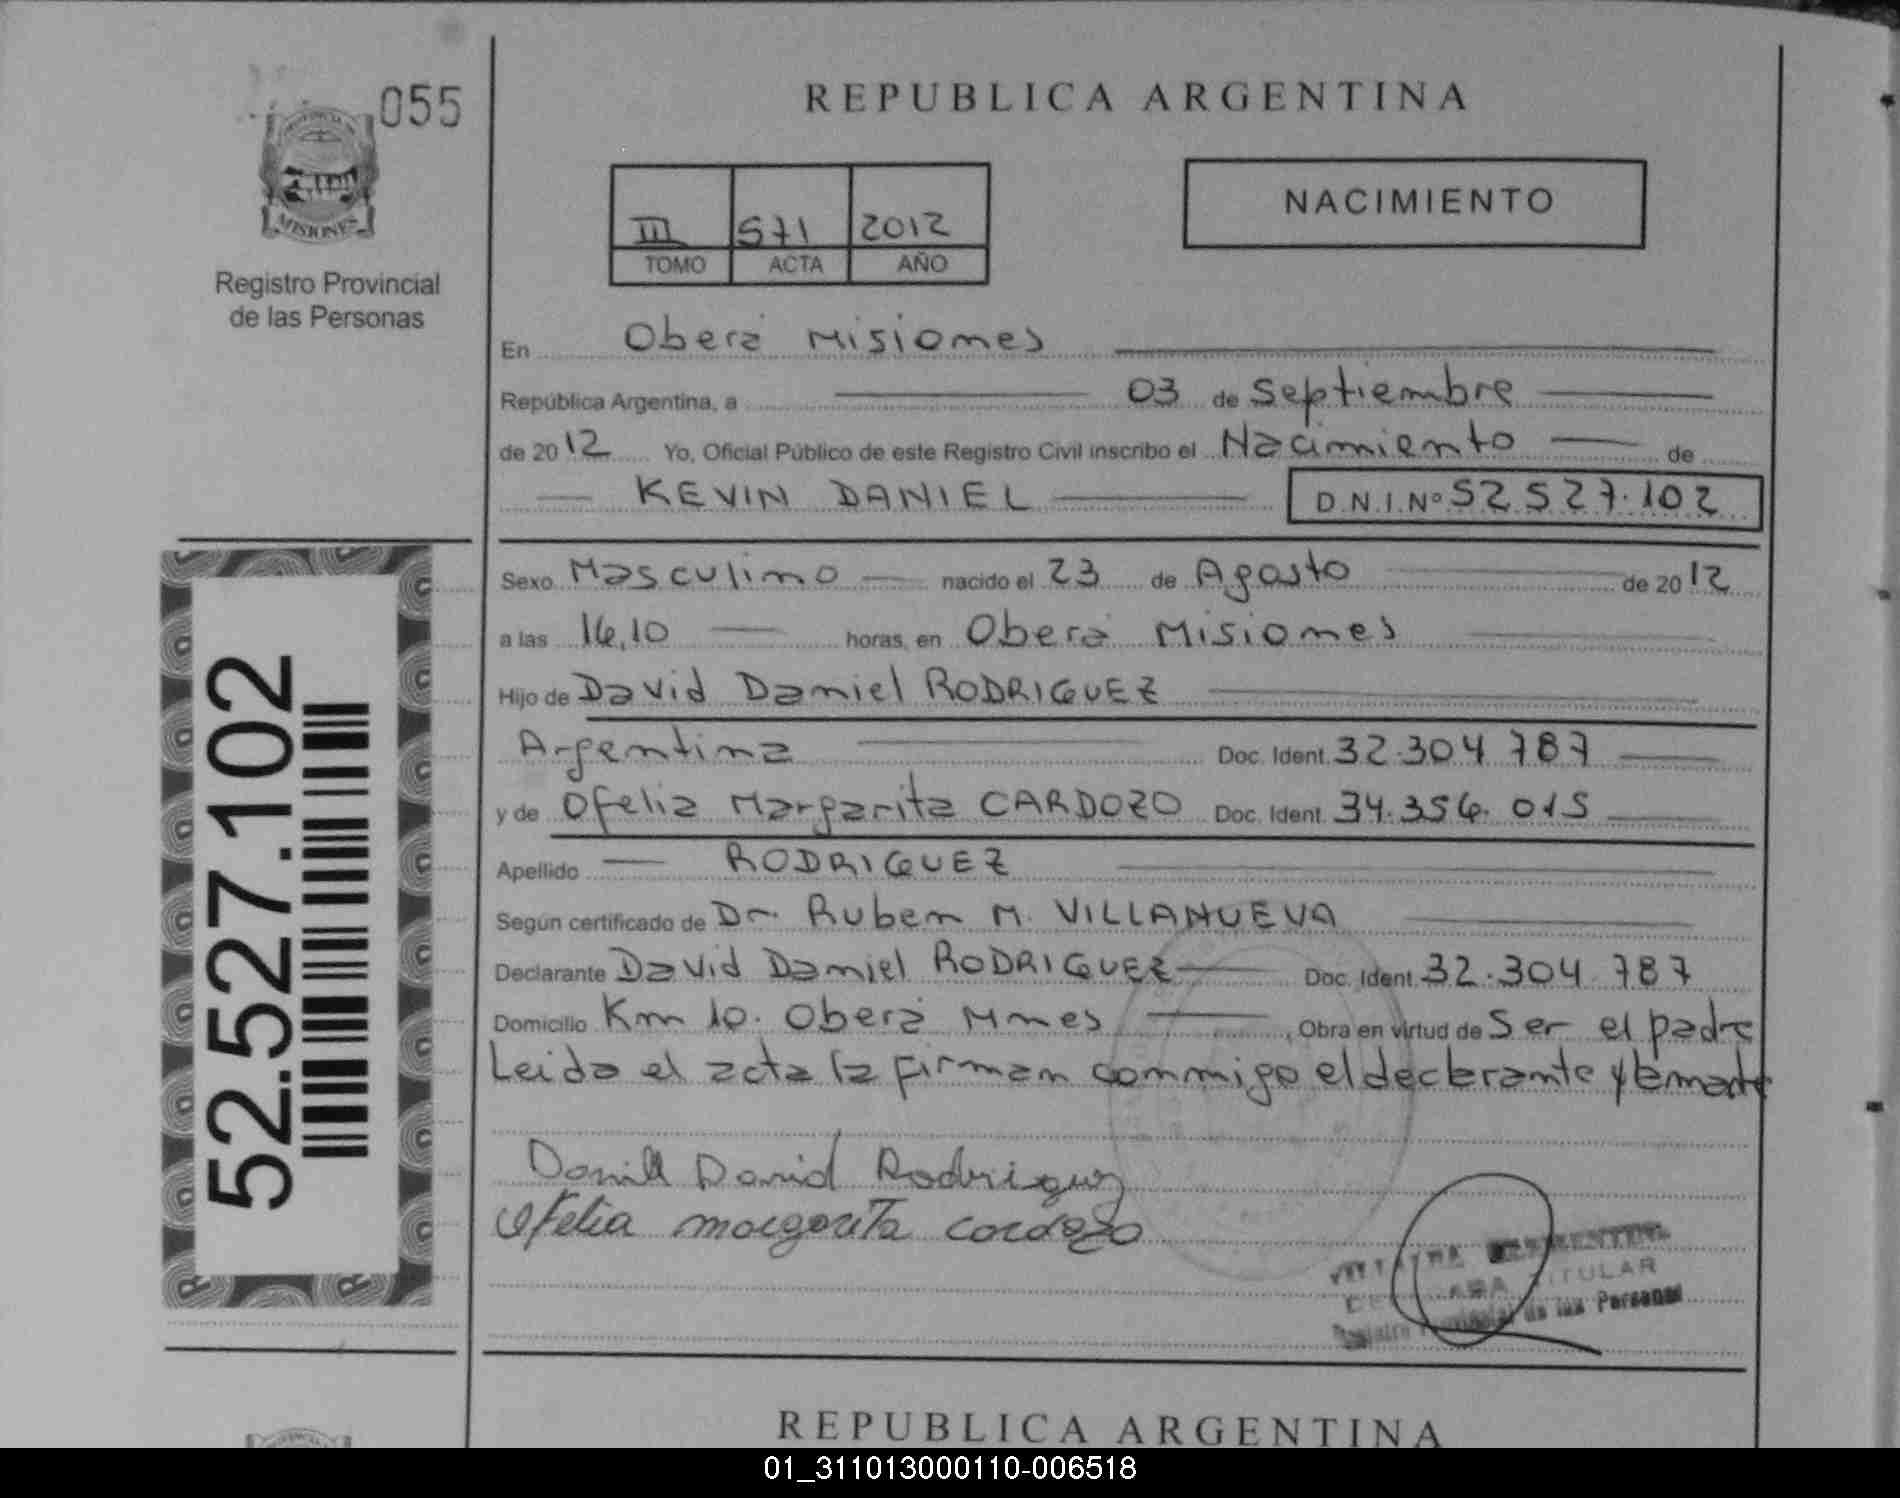 055
MISIONES
Registro Provincial
de las Personas
REPUBLICA ARGENTINA
III 571 2012
TOMO ACTA AÑO
NACIMIENTO
En Oberá Misiones
República Argentina, a 03 de Septiembre
de 2012 Yo, Oficial Público de este Registro Civil inscribo el Nacimiento de
KEVIN DANIEL D.N.I.Nº 52.527.102
Sexo Masculino nacido el 23 de Agosto de 2012
a las 16,10 horas, en Oberá Misiones
Hijo de David Daniel RODRIGUEZ
Argentina Doc. Ident. 32.304.787
y de Ofelia Margarita CARDOZO Doc. Ident. 34.356.015
Apellido RODRIGUEZ
Según certificado de Dr. Ruben M. VILLANUEVA
Declarante David Daniel RODRIGUEZ Doc. Ident. 32.304.787
Domicilio Km 10. Oberá Mnes, Obra en virtud de Ser el padre
Leida el acta la firman conmigo el declarante y la madre
David Rodriguez
Ofelia margarita cardozo
TITULAR
Registro Provincial de las Personas
52.527.102
REPUBLICA ARGENTINA
01_311013000110-006518